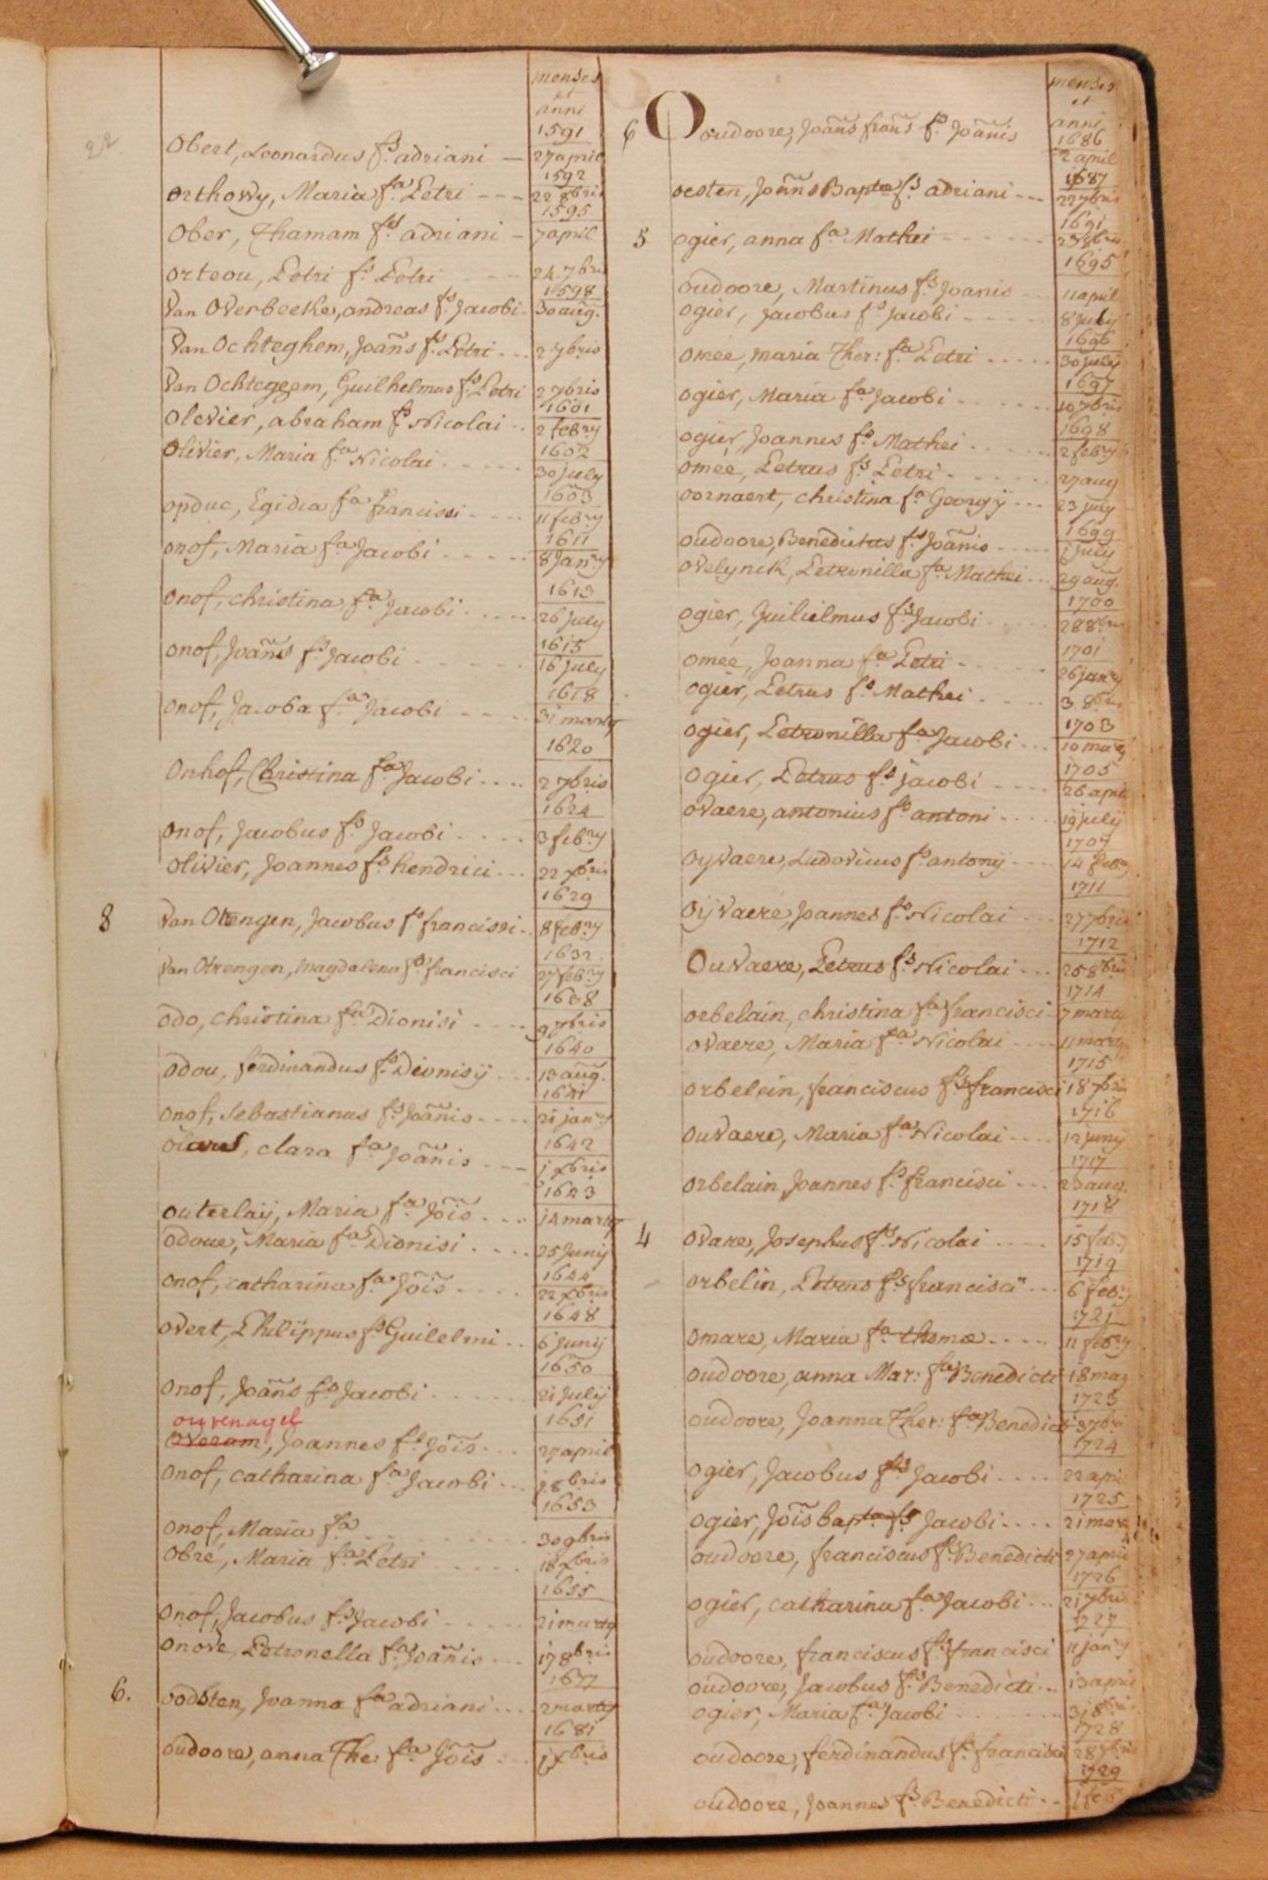 22
menses
et
anni
1591
Obert, Leonardus fs. adriani — 27 april
1592
orthowy, Maria fa Petri --- 22 8bris
1595
Ober, Thamam fs adriani - 7 april
orteou, Petri fs. Petri --- 24 7bris
1598
Van Overbeethe, andreas fs. Jacobi - 30 aug.
Van Ochteghem, Joañs fs. Petri ... 2 7bris
Van Ochtegeem, Guilhelmus fs. Petri 2 7bris
1601
Olevier, abraham fs Nicolai .. 2 febry
1602
Olivier, Maria fa Nicolai ..... 30 july
1603
opduc, Egidia fa francisci .... 11 febry
1611
onof, Maria fa Jacobi ...... 8 janry
1613
onof, christina fa Jacobi ..... 26 july
1615
onof, Joañs fs Jacobi ...... 16 july
1618
onof, Jacoba fa Jacobi .... 31 marty
1620
Onhof, Christina fa Jacobi .... 2 7bris
1624
onof, Jacobus fs. Jacobi ..... 3 febry
olivier, Joannes fs. hendrici ... 22 xbris
1629
8 Van Otengen, Jacobus fs francisci .. 8 febry
1632
Van Otrengen, Magdalena fa francisci 27 febry
1638
odo, christina fa Dionisi ..... 9 7bris
1640
odou, ferdinandus fs. Dionisij ... 13 aug.
1641
onof, Sebastianus fs Joañis .... 21 janry
1642
clara fa Joañis .... 1 xbris
1643
outerlaij, Maria fa Jois .... 14 marty
odoue, Maria fa Dionisi .... 25 Junij
1644
onof, catharina fa Jois ..... 22 xbris
1648
overt, Philippus fs Guilelmi .. 6 Junij
1650
onof, Joañs fs Jacobi ...... 21 july
ouvenagel
1651
overam, Joannes fs. Jois .... 27 april
onof, catharina fa Jacobi ... 28 bris
1653
onof, Maria fa ...... 30 9bris
obré, Maria fa Petri ..... 18 xbris
1655
onof, Jacobus fs Jacobi ..... 21 marty
onove, Petronella fa Joañis ... 17 8bris
1677
6. oodsten, Joanna fa adriani ... 2 marty
1681
oudoore, anna The fa Jois .. 1 xbris
menses
et
anni
1686
6 Ooudoore, Joañs frañs fs. Joañis 2 april
1687
oesten, Joañs Bapta fs. adriani --- 22 7bris
1691
5 ogier, anna fa Mathei ------
1695
oudoore, Martinus fs Joanis --- 11 april
ogier, Jacobus fs Jacobi ..... 8 july
1696
omée, maria Ther: fa Petri ..... 30 july
1697
ogier, Maria fa Jacobi ...... 10 7bris
1698
ogier, Joannes fs. Mathei ..... 2 febry
omée, Petrus fs Petri ...... 27 aug
oornaert, christina fa Georgij ... 23 july
1699
oudoore, Benedictus fs Joañis .... july
ovelynck, Petronilla fa Mathei ... 29 aug.
1700
ogier, Guilielmus fs. Jacobi .... 28 8bris
1701
omée, Joanna fa Petri ..... 26 janry
ogier, Petrus fs Mathei ..... 3 8bris
1703
ogier, Petronilla fa Jacobi ... 10 maij
1705
ogier, Petrus fs jacobi .... 26 april
ovaere, antonius fs antoni .... 19 july
1707
oyvaere, Ludovicus fs antonij .... 14 febry
1711
Oijvaere, Joannes fs. Nicolai ... 27 7bris
1712
Ouvaere, Petrus fs. Nicolai ... 25 8bris
1714
orbelain, christina fa francisci - 7 marty
ovaere, Maria fa Nicolai .... 11 marty
1715
orbelein, franciscus fs francisci 18 7bris
1716
ouvaere, Maria fa Nicolai .... 12 juny
1717
orbelain, Joannes fs. francisci ... 23 aug.
1718
4 ovare, Josephus fs Nicolai ..... 15 feb.
1719
orbelin, Petrus fs francisci ... 6 febry
1721
omare, Maria fa thomæ ..... 11 febry
oudoore, anna Mar: fa Benedicti 18 maij
1723
oudoore, Joanna Ther: fa Benedicti
1724
ogier, Jacobus fs Jacobi ..... 22 apri
1725
ogier, Jois bapta fs Jacobi .... 21 mare
oudoore, franciscus fs. Benedicti 27 april
1726
ogier, catharina fa Jacobi ... 21 7bris
1727
oudoore, franciscus fs francisci 11 janry
oudoore, Jacobus fs. Benedicti .. 13 april
ogier, Maria fa Jacobi .....
1728
oudoore, ferdinandus fs. francisci
1729
oudoore, Joannes fs. Benedicti ..